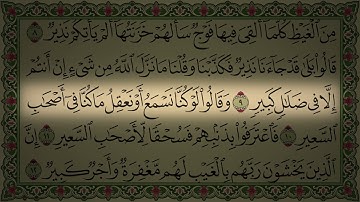 مِنَ ٱلْغَيْظِ كُلَّمَآ أُلْقِىَ فِيهَا فَوْجٌ سَأَلَهُمْ خَزَنَتُهَآ أَلَمْ يَأْتِكُمْ نَذِيرٌ ٨
قَالُوا۟ بَلَىٰ قَدْ جَآءَنَا نَذِيرٌ فَكَذَّبْنَا وَقُلْنَا مَا نَزَّلَ ٱللَّهُ مِن شَىْءٍ إِنْ أَنتُمْ
إِلَّا فِى ضَلَٰلٍ كَبِيرٍ ٩ وَقَالُوا۟ لَوْ كُنَّا نَسْمَعُ أَوْ نَعْقِلُ مَا كُنَّا فِىٓ أَصْحَٰبِ
ٱلسَّعِيرِ ١٠ فَٱعْتَرَفُوا۟ بِذَنۢبِهِمْ فَسُحْقًا لِّأَصْحَٰبِ ٱلسَّعِيرِ ١١ إِنَّ
ٱلَّذِينَ يَخْشَوْنَ رَبَّهُم بِٱلْغَيْبِ لَهُم مَّغْفِرَةٌ وَأَجْرٌ كَبِيرٌ ١٢